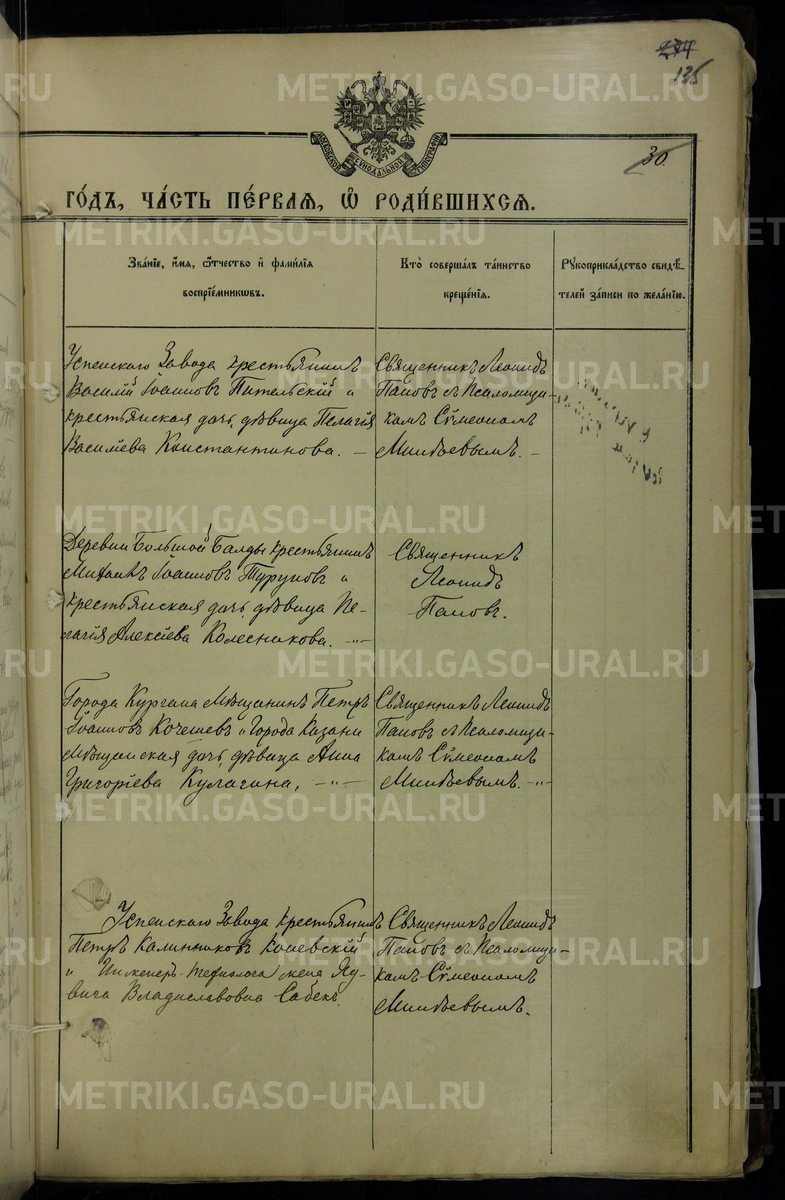 274
135
METRIKI.GASO-URAL.RU
МОСКОВСКОЙ СѴНОДАЛЬНОЙ ТИПОГРАФІИ
30
ГО́ДЪ, ЧА́СТЬ ПЕ́РВАѦ, Ѡ҆ РОДИ́ВШИХСѦ.
METRIKI.GASO-URAL.RU
Зва́нїе, и҆́мѧ, ѻ҆́тчество и҆ фами́лїѧ
воспрїе́мникѡвъ.
Кто̀ соверша́лъ та́инство
креще́нїѧ.
Рꙋкоприкла́дство свидѣ́-
телей за́писи по жела́нїю.
Успенскаго Завода крестьянинъ
Василій Іоанновъ Пительскій и
крестьянская дочь, дѣвица Пелагія
Василіева Константинова. —
Священникъ Леонидъ
Паповъ съ Псаломщи-
комъ Сѵмеономъ
Минѣевымъ. —
METRIKI.GASO-URAL.RU
Деревни Большой Балды крестьянинъ
Михаилъ Іоанновъ Туруновъ и
крестьянская дочь, дѣвица Пе-
лагія Алексіева Колесникова. —"—
Священникъ
Леонидъ
Паповъ.
METRIKI.GASO-URAL.RU
Города Кургана Мѣщанинъ Петръ
Іоанновъ Кочешевъ и Города Казани
Мѣщанская дочь, дѣвица Анна
Григоріева Кулагина, —"—
Священникъ Леонидъ
Паповъ съ Псаломщи-
комъ Сѵмеономъ
Минѣевымъ. —"—
METRIKI.GASO-URAL.RU
Успенскаго Завода крестьянинъ
Петръ Калинниковъ
и Инженеръ-технолога жена Яд-
вига Владиславовна Сабекъ.
Священникъ Леонидъ
Паповъ съ Псаломщи-
комъ Сѵмеономъ
Минѣевымъ.
METRIKI.GASO-URAL.RU
METRIKI.GASO-URAL.RU